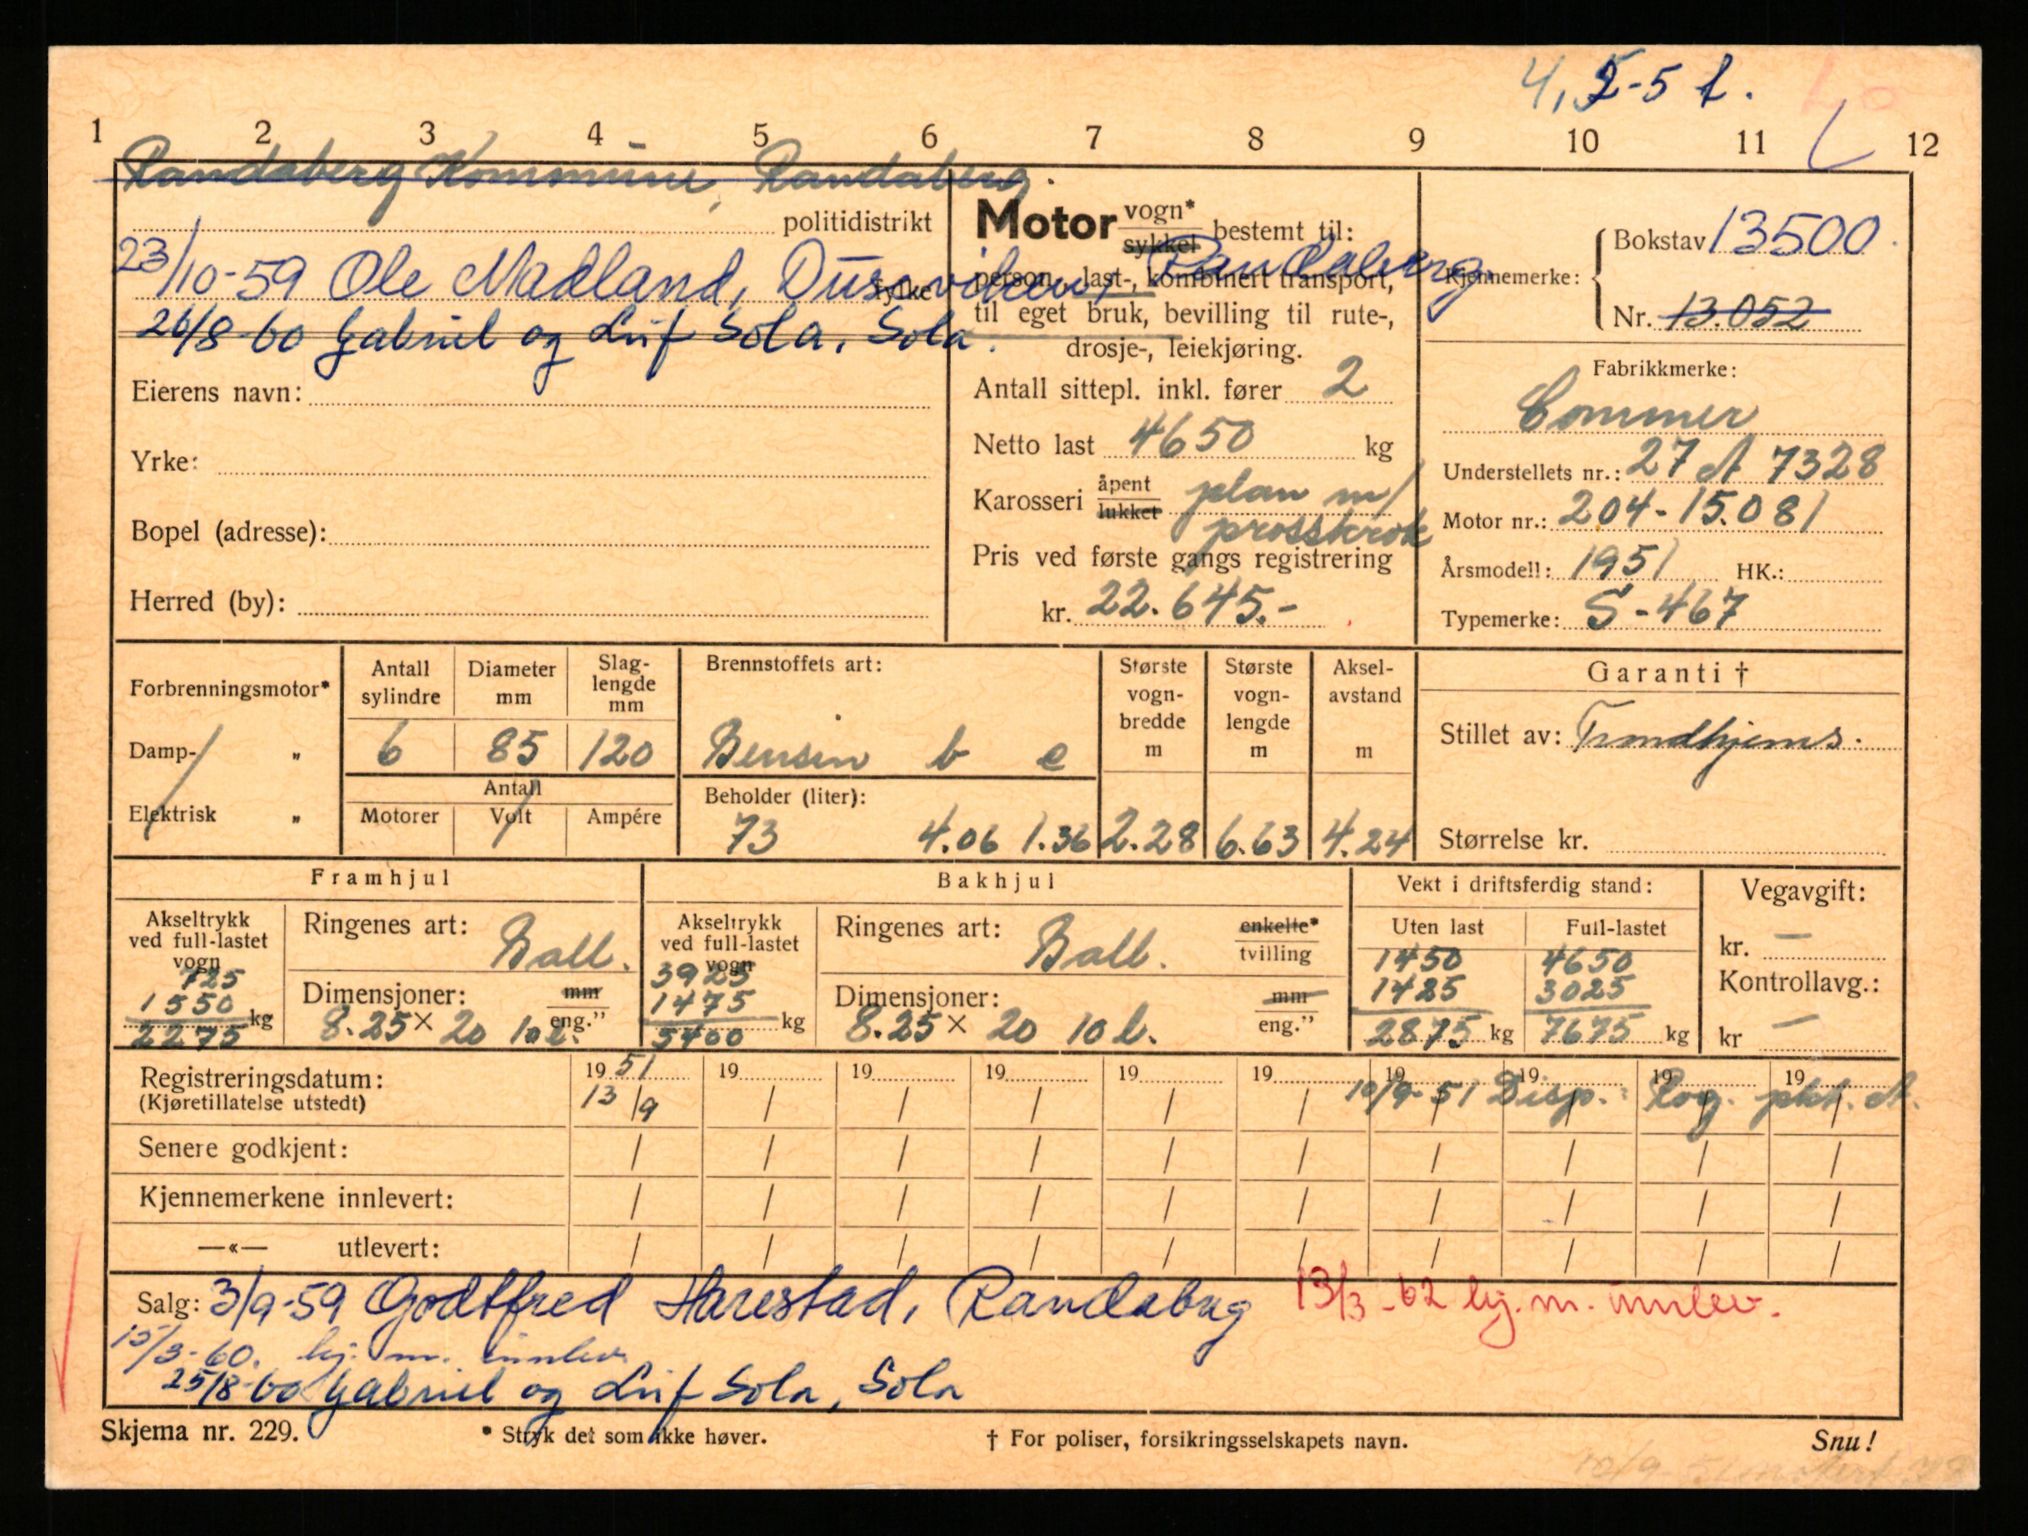 4,5-5 t.
1 2 3 4 5 6 7 8 9 10 11 12
Randaberg Kommune, Randaberg.
politidistrikt
23/10-59 Ole Madland, Dusaviken, Randaberg.
fylke
26/8-60 Gabriel og Leif Sola, Sola.
Eierens navn:
Yrke:
Bopel (adresse):
Herred (by):
Motor vogn* sykkel bestemt til:
person-, last-, kombinert transport,
til eget bruk, bevilling til rute-,
drosje-, leiekjøring.
Antall sittepl. inkl. fører 2
Netto last 4650 kg
Karosseri åpent lukket plan m/
prosskrok
Pris ved første gangs registrering
kr. 22.645.-
Kjennemerke: Bokstav 13500
Nr. 13.052
Fabrikkmerke:
Commer
Understellets nr.: 27 A 7328
Motor nr.: 204-15.081
Årsmodell: 1951 HK.:
Typemerke: S-467
Forbrenningsmotor*
Damp- "
Elektrisk "
Antall sylindre 6
Diameter mm 85
Slag-lengde mm 120
Antall
Motorer Volt Ampére
Brennstoffets art:
Bensin b e
Beholder (liter):
73 4.06 1.36
Største vogn-bredde m 2.28
Største vogn-lengde m 6.63
Aksel-avstand m 4.24
Garanti †
Stillet av: Trondhjems.
Størrelse kr.
Framhjul
Akseltrykk ved full-lastet vogn
725
1550
2275 kg
Ringenes art: Ball.
Dimensjoner: mm
8.25 x 20 10 l. eng."
Bakhjul
Akseltrykk ved full-lastet vogn
3925
1475
5400 kg
Ringenes art: Ball. enkelte* tvilling
Dimensjoner: mm
8.25 x 20 10 l. eng."
Vekt i driftsferdig stand:
Uten last Full-lastet
1450 4650
1425 3025
2875 kg 7675 kg
Vegavgift:
kr. —
Kontrollavg.:
kr —
Registreringsdatum: 1951 19 19 19 19 19 19 19 19 19
(Kjøretillatelse utstedt) 13/9 / / / / / 10/9-51 Disp. Rog. pkt. A.
Senere godkjent: / / / / / / / / / /
Kjennemerkene innlevert: / / / / / / / / / /
—«— utlevert: / / / / / / / / / /
Salg: 3/9-59 Godtfred Harestad, Randaberg 13/3-62 kj. m. innlev.
15/3-60. kj. m. innlev.
25/8-60 Gabriel og Leif Sola, Sola
Skjema nr. 229.
* Stryk det som ikke høver.
† For poliser, forsikringsselskapets navn.
Snu!